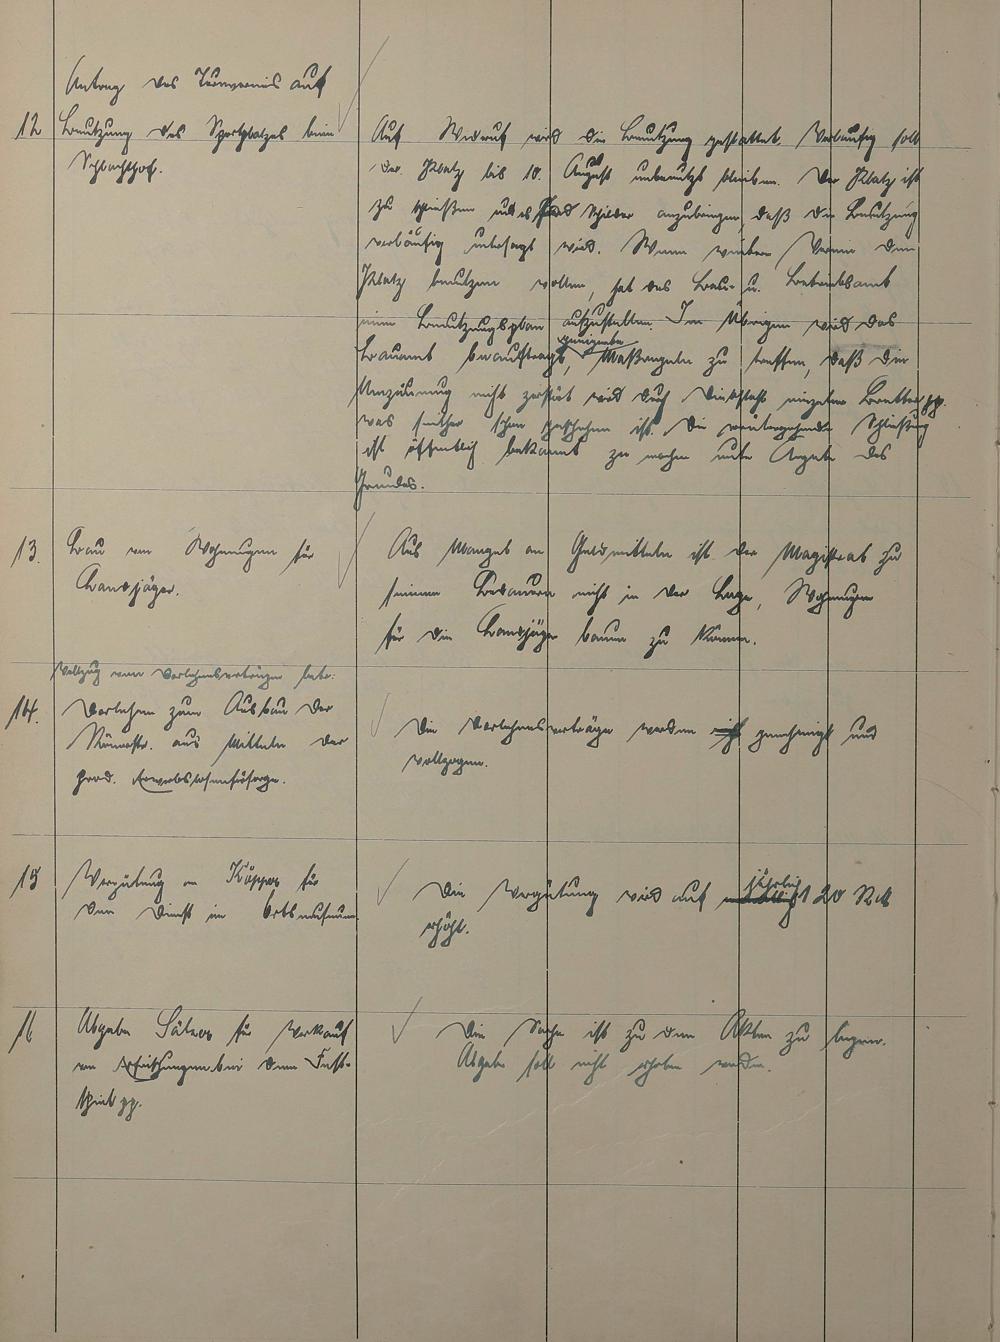 Antrag des Turnvereins auf
12 Benutzung des Sportplatzes beim
Schlachthof.
Auf Widerruf wird die Benutzung gestattet. Vorläufig soll
der Platz bis 10. August unbenutzt bleiben. Der Platz ist
zu schließen und es sind Schilder anzubringen, daß die Benutzung
vorläufig untersagt wird. Wenn weitere Vereine den
Platz benutzen wollen, hat das Bau- u. Betriebsamt
einen Benutzungsplan aufzustellen. Im Übrigen wird das
geeignete
Bauamt beauftragt, Maßregeln zu treffen, daß die
Umzäunung nicht zerstört wird durch Diebstahl einzelner Bretter pp.
was seither schon geschehen ist. Die vorübergehende Schließung
ist öffentlich bekannt zu machen unter Angabe des
Grundes.
13. Bau von Wohnungen für
Landjäger.
Aus Mangel an Geldmitteln ist der Magistrat zu
seinem Bedauern nicht in der Lage, Wohnungen
für die Landjäger bauen zu können.
Vollzug von Darlehensverträgen betr.
14. Darlehen zum Ausbau der
Römerstr. aus Mitteln der
prod. Erwerbslosenfürsorge.
Die Darlehensverträge werden genehmigt und
vollzogen.
15 Vergütung an Kappes für
den Dienst im Ortsmuseum
jährlich
Die Vergütung wird auf 120 RM
erhöht.
16 Abgabe für Verkauf
von Erfrischungen bei dem Fest-
spiel pp.
Die Sache ist zu den Akten zu legen.
Abgabe soll nicht erhoben werden.